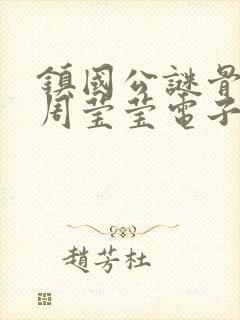 鎮國公謎骨
周莹莹電子
趙芳杜